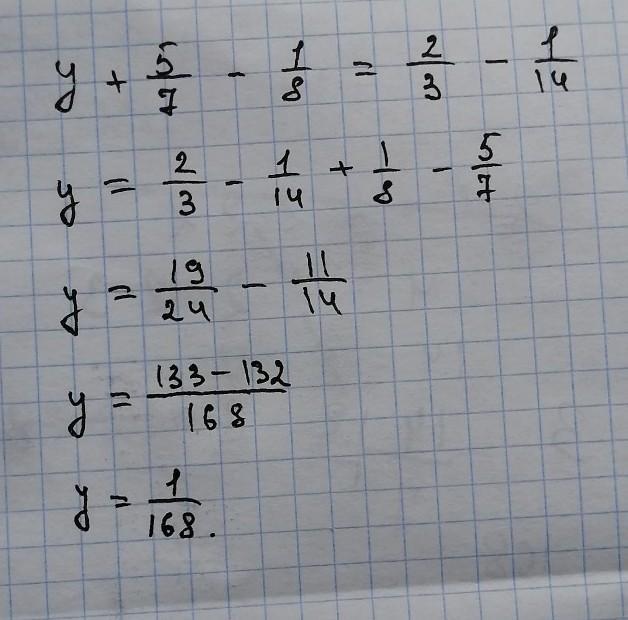 y + 5/7 - 1/8 = 2/3 - 1/14
y = 2/3 - 1/14 + 1/8 - 5/7
y = 19/24 - 11/14
y = (133 - 132)/168
y = 1/168.